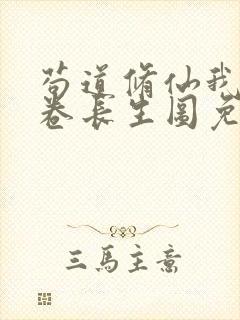 苟道修仙我
卷长生图免
三馬主意